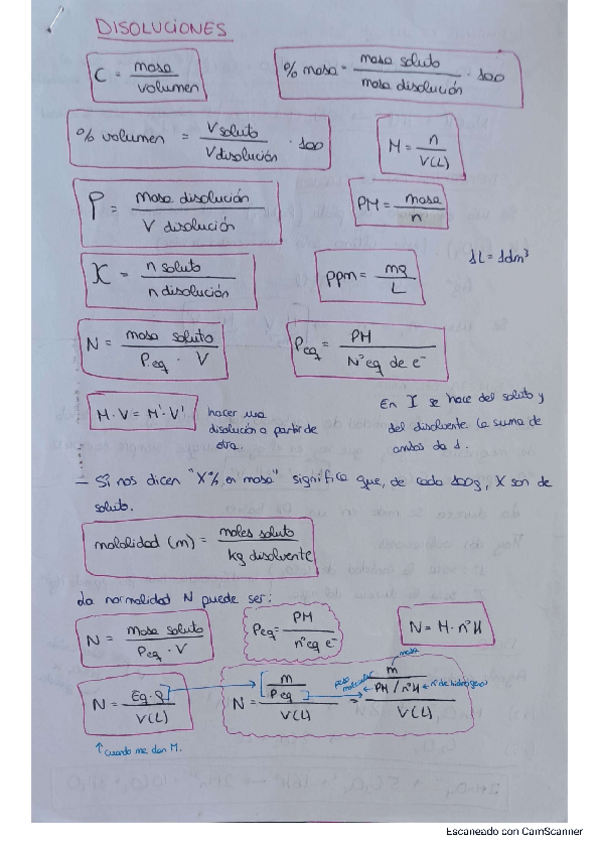 DISOLUCIONES
C = masa / volumen
% masa = masa soluto / masa disolución · 100
% volumen = V soluto / V disolución · 100
M = n / V(L)
ρ = masa disolución / V disolución
PM = masa / n
X = n soluto / n disolución
ppm = mg / L
1L = 1dm³
N = masa soluto / Peq · V
Peq = PM / Nº eq de e⁻
M · V = M' · V'
hacer una
disolución a partir de
otra.
En X se hace del soluto y
del disolvente. La suma de
ambos da 1.
— Si nos dicen "X% en masa" significa que, de cada 100g, X son de
soluto.
molalidad (m) = moles soluto / kg disolvente
La normalidad N puede ser:
N = masa soluto / Peq · V
Peq = PM / nº eq e⁻
N = M · nº H
N = Eq-g / V(L)
N = m / Peq / V(L) = m / PM / nº H / V(L)
masa
peso molecular
nº de hidrógenos
↑ cuando me dan M.
Escaneado con CamScanner